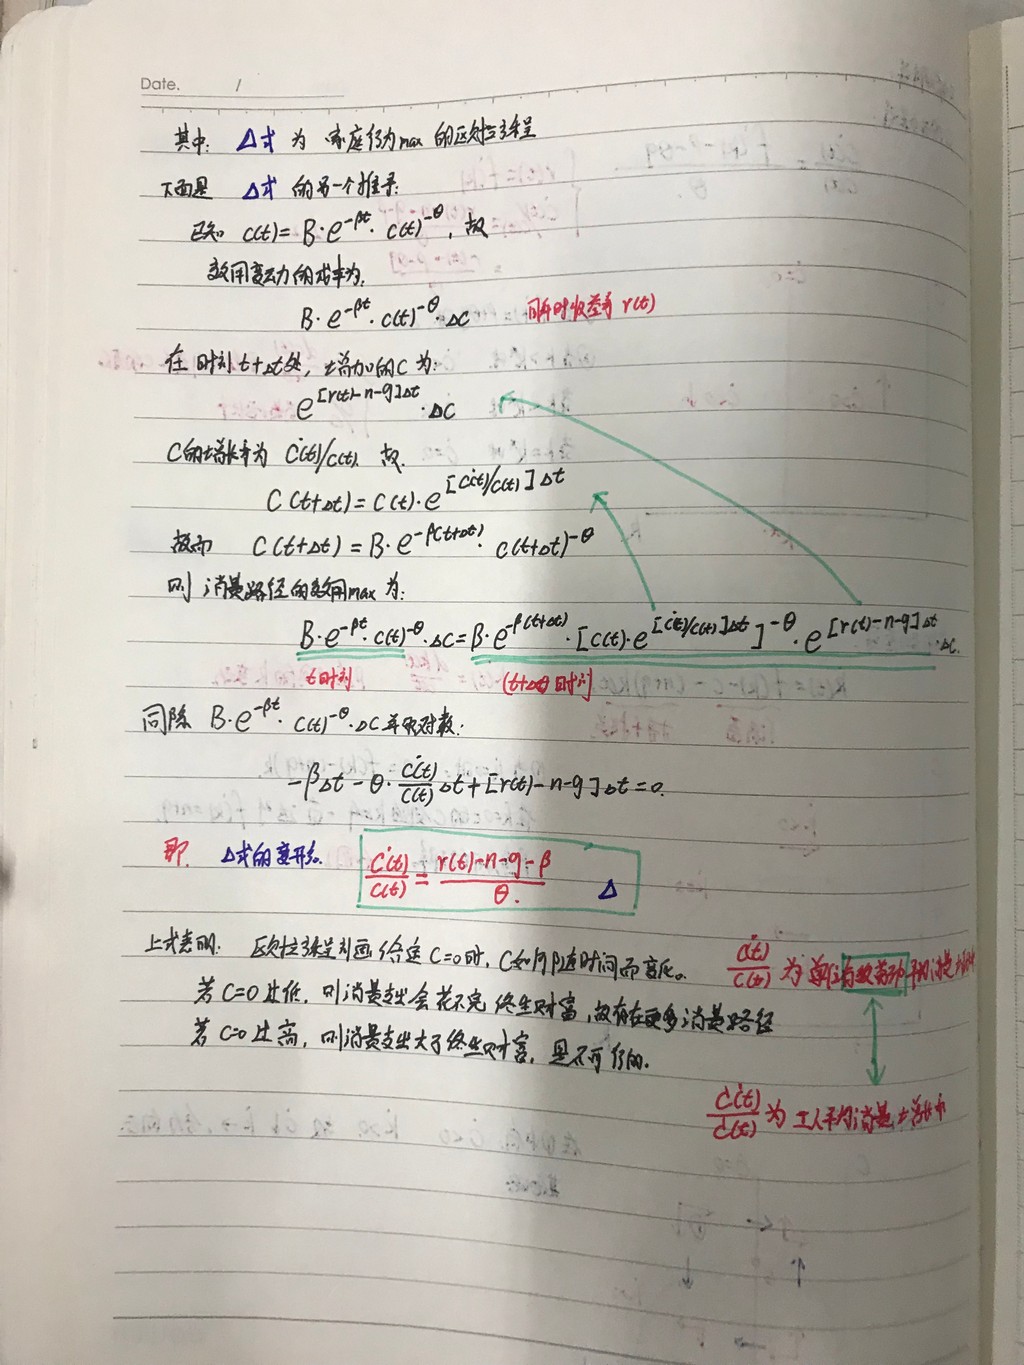 Date. /
其中: Δ式 为 家庭行为max 的欧拉方程
下面是 Δ式 的另一个推导:
已知 c(t)= B·e^{-βt}· c(t)^{-θ}, 故
效用变动的成本为:
B·e^{-βt}·c(t)^{-θ}·ΔC 同时收益率 r(t)
在时刻t+Δt处, 增加的C为:
e^{[r(t)-n-g]Δt}·ΔC
C的增长率为 ċ(t)/c(t). 故.
C(t+Δt)=C(t)·e^{[ċ(t)/c(t)]Δt}
故而 C(t+Δt)=B·e^{-β(t+Δt)}· c(t+Δt)^{-θ}
则 消费路径的效用max 为:
B·e^{-βt}·c(t)^{-θ}·ΔC=B·e^{-β(t+Δt)}·[c(t)·e^{[ċ(t)/c(t)]Δt}]^{-θ}·e^{[r(t)-n-g]Δt}·ΔC.
t时刻 (t+Δt) 时刻
同除 B·e^{-βt}· c(t)^{-θ}·ΔC 并取对数:
-βΔt-θ·ċ(t)/c(t) Δt+[r(t)-n-g]Δt=0.
即 Δ式的变形. ċ(t)/c(t) = r(t)-n-g-β/θ. Δ
上式表明: 欧拉方程刻画给定C=0时, C如何随时间而变化。 ċ(t)/c(t) 为 单位有效劳动平均消费增长率
若C=0过低, 则消费支出会花不完终生财富, 故存在更多消费路径
若C=0过高, 则消费支出大于终生财富, 是不可行的.
Ċ(t)/C(t) 为 工人平均消费增长率